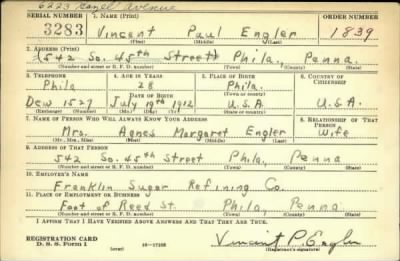 6223 Hazel Avenue
SERIAL NUMBER 1. NAME (Print) ORDER NUMBER
3283 Vincent Paul Engler 1839
(First) (Middle) (Last)
2. ADDRESS (Print)
(542 So. 45th Street) Phila, Penna.
(Number and street or R. F. D. number) (Town) (County) (State)
3. TELEPHONE 4. AGE IN YEARS 5. PLACE OF BIRTH 6. COUNTRY OF CITIZENSHIP
Phila 28 Phila.
(Exchange) (Town or county)
DATE OF BIRTH
Dew 1527 July 19th 1912 U.S.A. U.S.A.
(Number) (Mo.) (Day) (Yr.) (State or country)
7. NAME OF PERSON WHO WILL ALWAYS KNOW YOUR ADDRESS 8. RELATIONSHIP OF THAT PERSON
Mrs. Agnes Margaret Engler Wife
(Mr., Mrs., Miss) (First) (Middle) (Last)
9. ADDRESS OF THAT PERSON
542 So. 45th Street Phila, Penna
(Number and street or R. F. D. number) (Town) (County) (State)
10. EMPLOYER'S NAME
Franklin Sugar Refining Co.
11. PLACE OF EMPLOYMENT OR BUSINESS
Foot of Reed St. Phila, Penna
(Number and street or R. F. D. number) (Town) (County) (State)
I AFFIRM THAT I HAVE VERIFIED ABOVE ANSWERS AND THAT THEY ARE TRUE.
REGISTRATION CARD
D. S. S. Form 1 (over) 16—17105 Vincent P. Engler
(Registrant's signature)